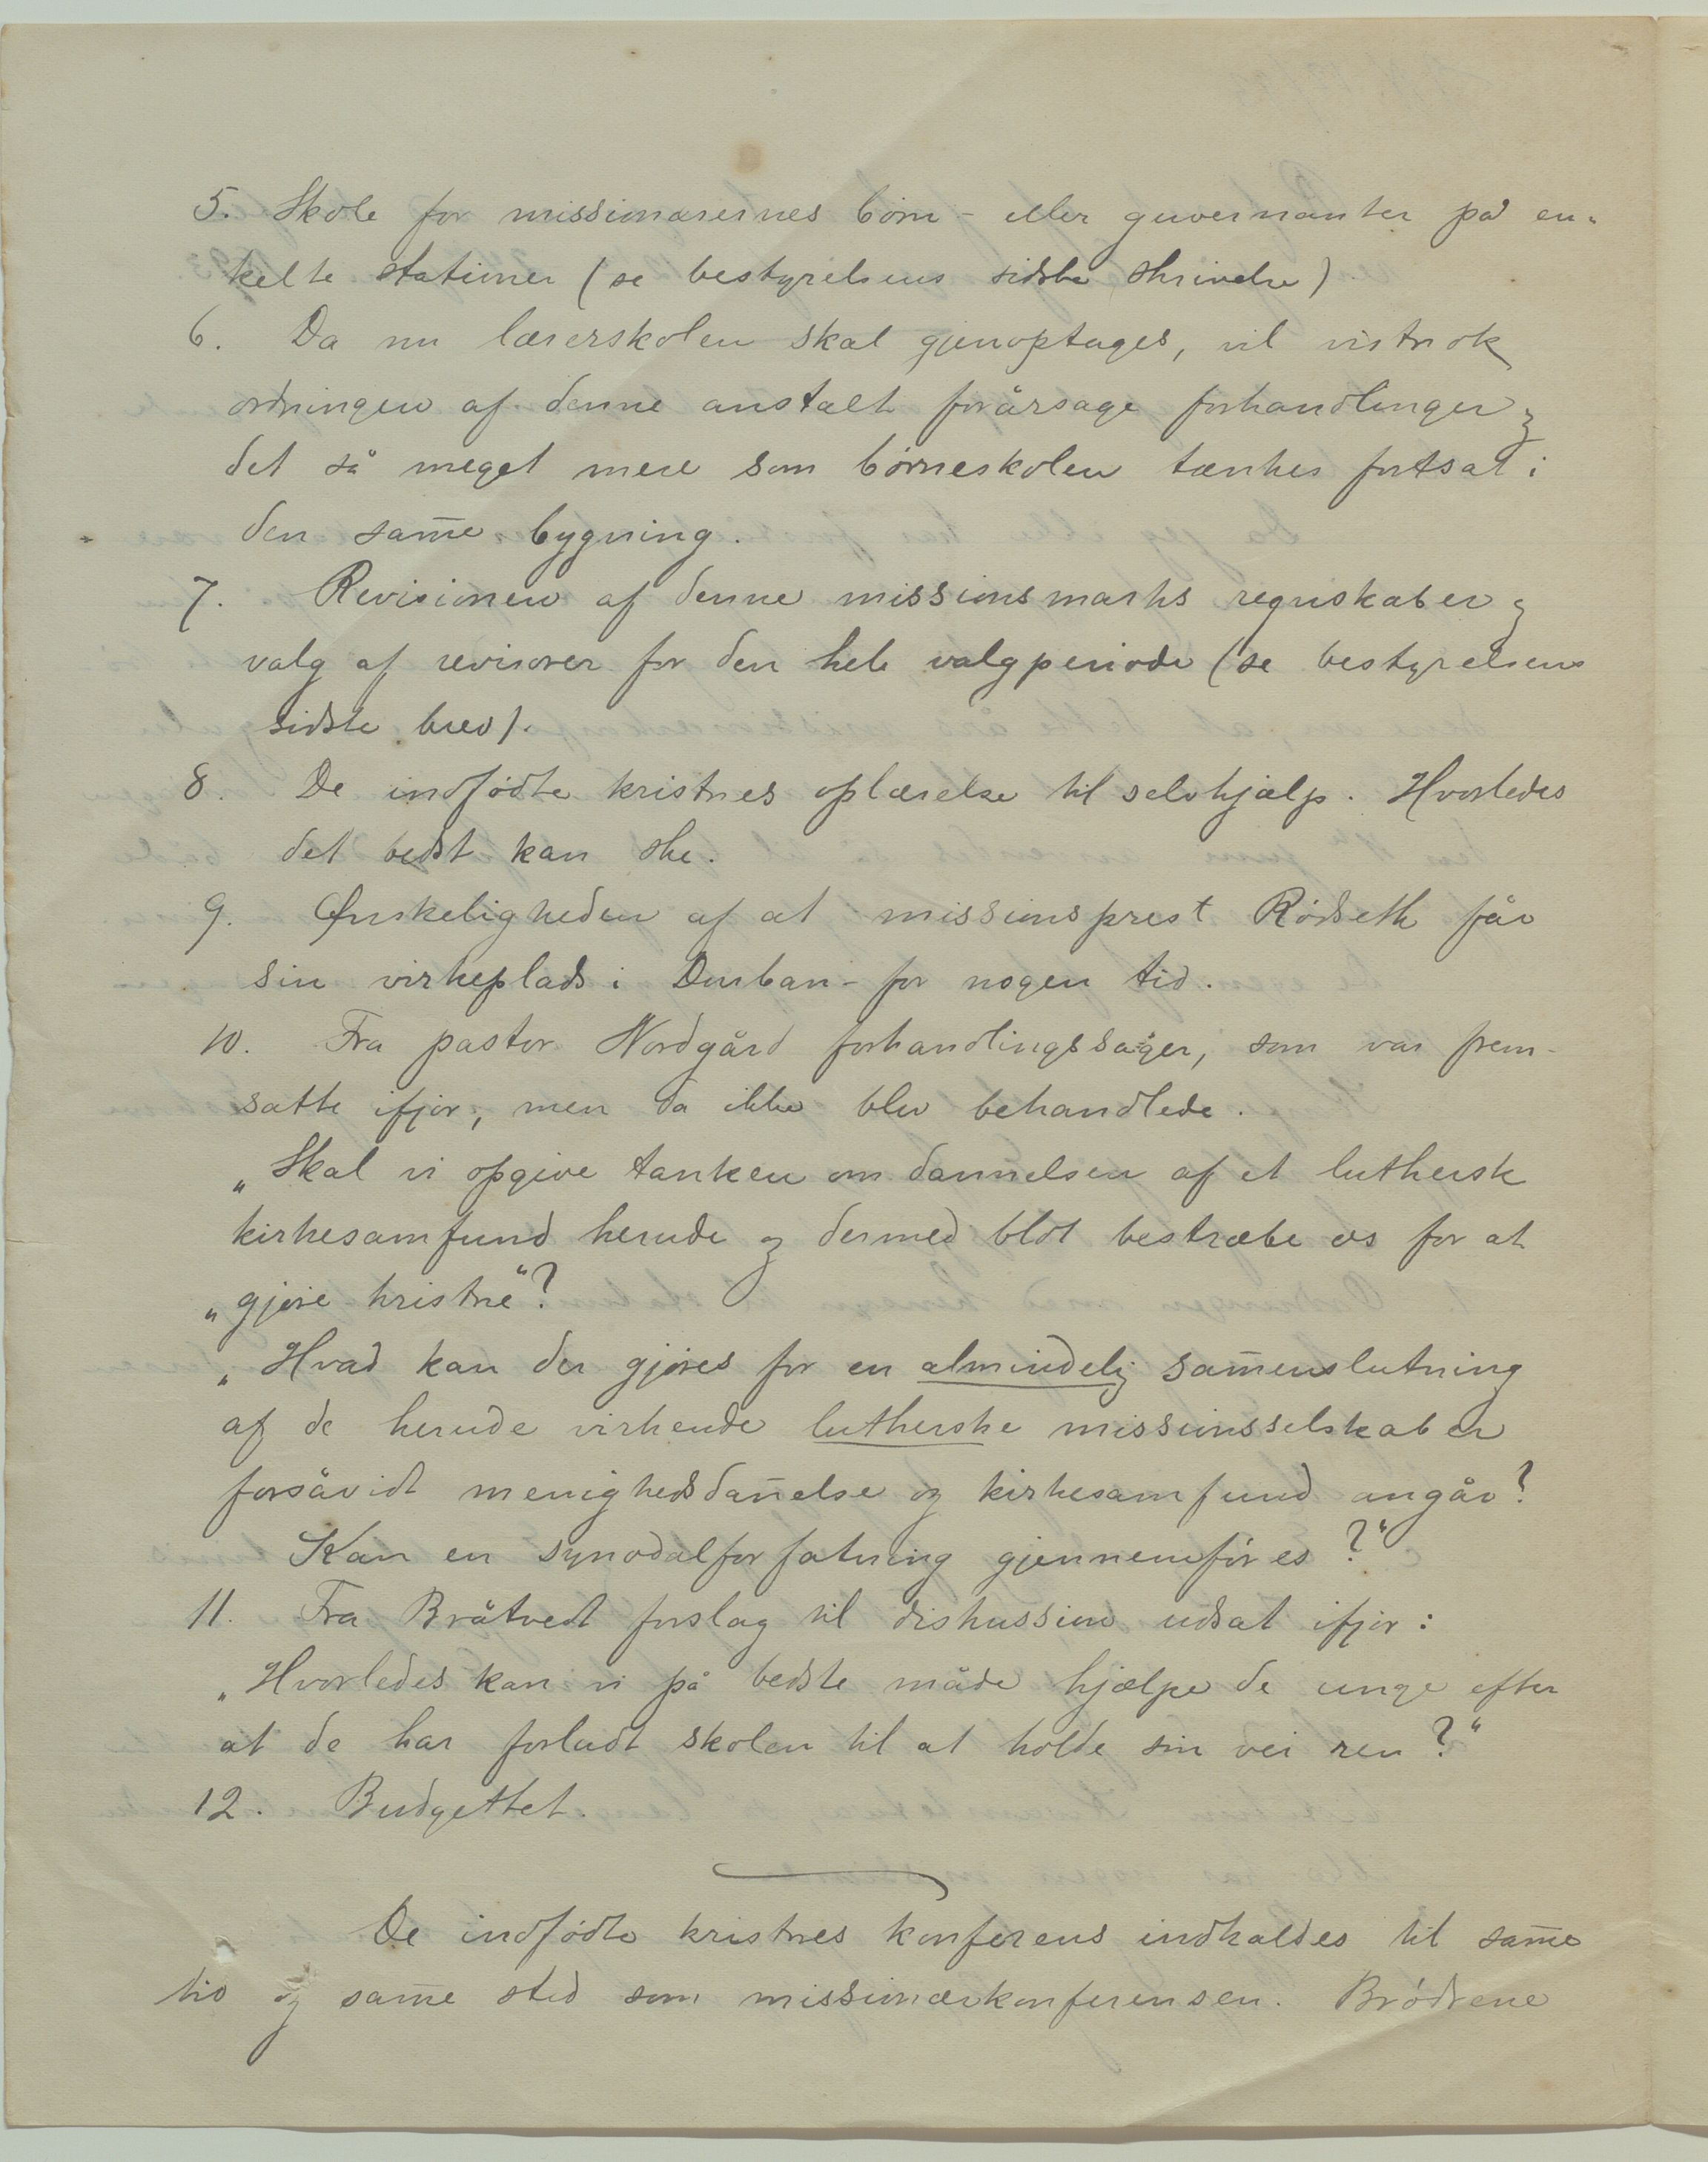 5. Skole for missionærernes børn - eller guvernanter på en-
kelte stationer (se bestyrelsens sidste skrivelse)
6. Da nu lærerskolen skal gjenoptages, vil vistnok
ordningen af denne anstalt forårsage forhandlinger og
det så meget mere som børneskolen tænkes fortsat i
den sam̄e bygning.
7. Revisionen af denne missionsmarks regnskaber og
valg af revisorer for den hele valgperiode (se bestyrelsens
sidste brev).
8. De indfødte kristnes oplærelse til selvhjælp. Hvorledes
det bedst kan ske.
9. Ønskeligheden af at missionsprest Rødseth får
sin virkeplads i Durban - for nogen tid.
10. Fra pastor Nordgård forhandlingssager, som var frem-
satte ifjor, men da ikke blev behandlede.
„Skal vi opgive tanken om dannelsen af et luthersk
kirkesamfund herude og dermed blot bestræbe os for at
„gjøre kristne“?
„Hvad kan der gjøres for en almindelig sam̄enslutning
af de herude virkende lutherske missionsselskaber
forsåvidt menighedsdan̄else og kirkesamfund angår?
Kan en synodalforfatning gjennemføres?“
11. Fra Bråtvedt forslag til diskussion udsat ifjor:
„Hvorledes kan vi på bedste måde hjælpe de unge efter
at de har forladt skolen til at holde sin vei ren?“
12. Budgettet.
De indfødte kristnes konferens indkaldes til sam̄e
tid og sam̄e sted som missionærkonferensen. Brødrene